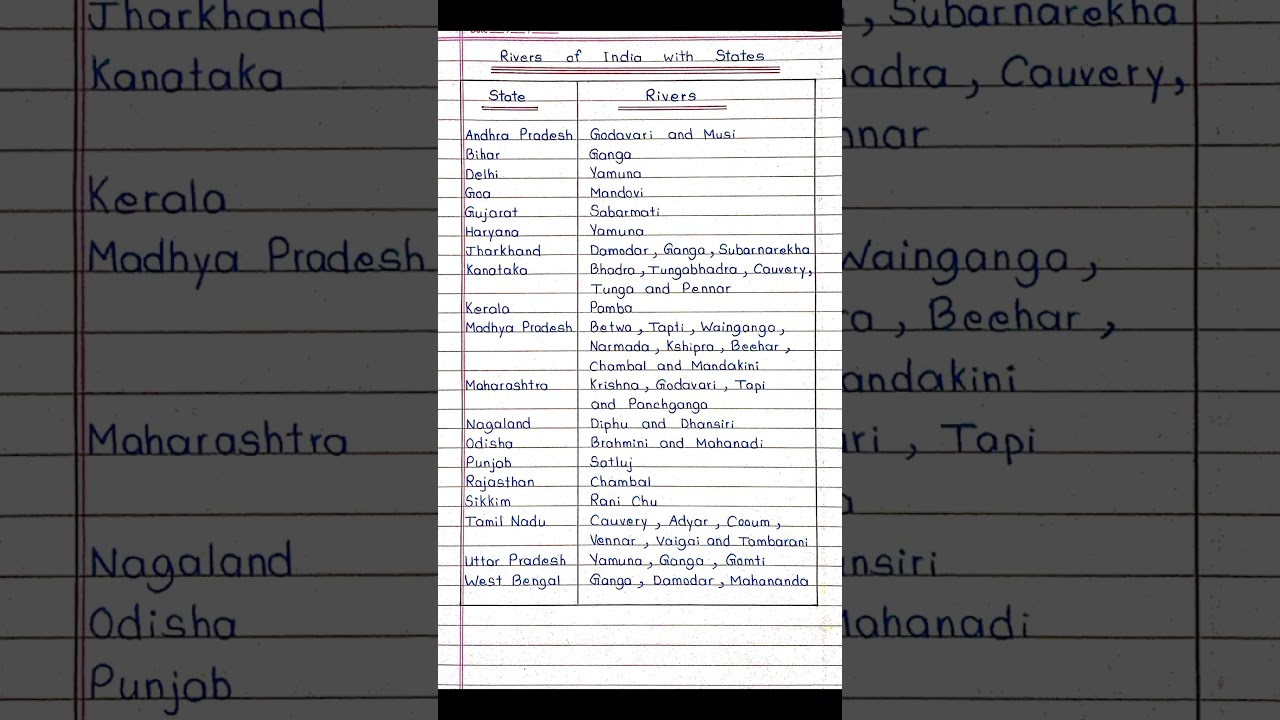 Rivers of India with States
State Rivers
Andhra Pradesh Godavari and Musi
Bihar Ganga
Delhi Yamuna
Goa Mandovi
Gujarat Sabarmati
Haryana Yamuna
Jharkhand Damodar, Ganga, Subarnarekha
Kanataka Bhadra, Tungabhadra, Cauvery,
Tunga and Pennar
Kerala Pamba
Madhya Pradesh Betwa, Tapti, Wainganga,
Narmada, Kshipra, Beehar,
Chambal and Mandakini
Maharashtra Krishna, Godavari, Tapi
and Panchganga
Nagaland Diphu and Dhansiri
Odisha Brahmini and Mahanadi
Punjab Satluj
Rajasthan Chambal
Sikkim Rani Chu
Tamil Nadu Cauvery, Adyar, Cooum,
Vennar, Vaigai and Tambarani
Uttar Pradesh Yamuna, Ganga, Gomti
West Bengal Ganga, Damodar, Mahananda